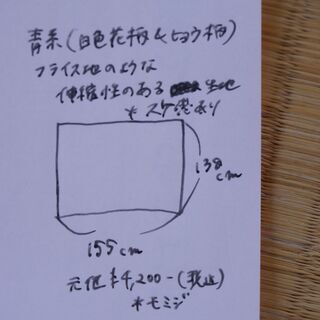 青系(白色花柄&ヒョウ柄)
フライス地のような
伸縮性のある 生地
*スケ感あり
138
cm
155cm
元値 ¥4,200-(税込)
*モミジ